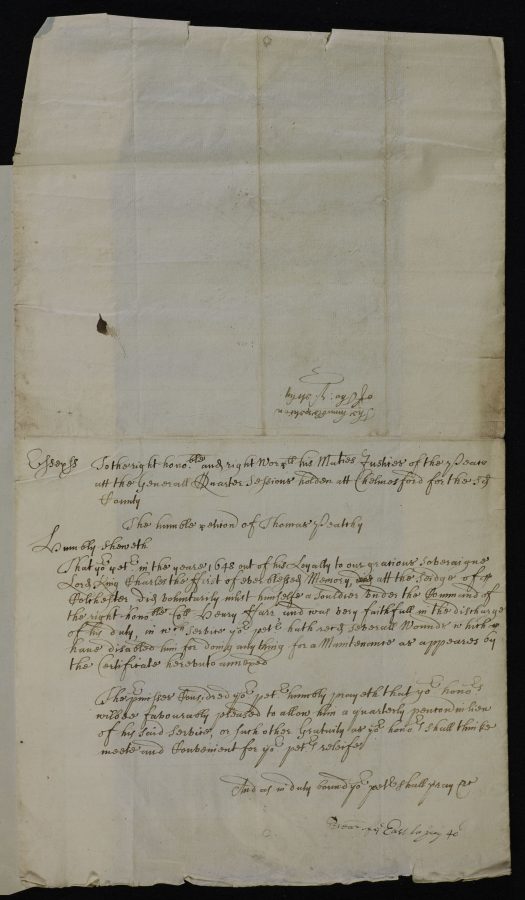 The humble petition
of Tho:
Essex ss To the right honoble and right Worpll his Maties Justices of the Peace
att the Generall Quarter Sessions holden att Chelmesford for the sd
County
The humble peticion of Thomas Peachy
Humbly sheweth
That yor petr in the yeare 1648 out of his Loyalty to our gratious Soveraigne
Lord King Charles the first of ever blessed Memory, did att the Seidge of
Colchester did voluntarily inlist himselfe a Souldier under the Command of
the right honoble Coll Henry Farr and was very faithfull in the discharge
of his duty, in wch service yor petr hath recd severall Wounds which
have disabled him for doing any thing for a Maintenance as appeares by
the Certificate hereunto annexed
The premisses Considred yor petr humbly prayeth that yor honors
wilbe favourably pleased to allow him a quarterly pencon in lieu
of his said service, or such other Gratuity as yor honors shall thinke
meete and Convenient for yor petrs releife
And as in duty bound yor petr shall pray &c